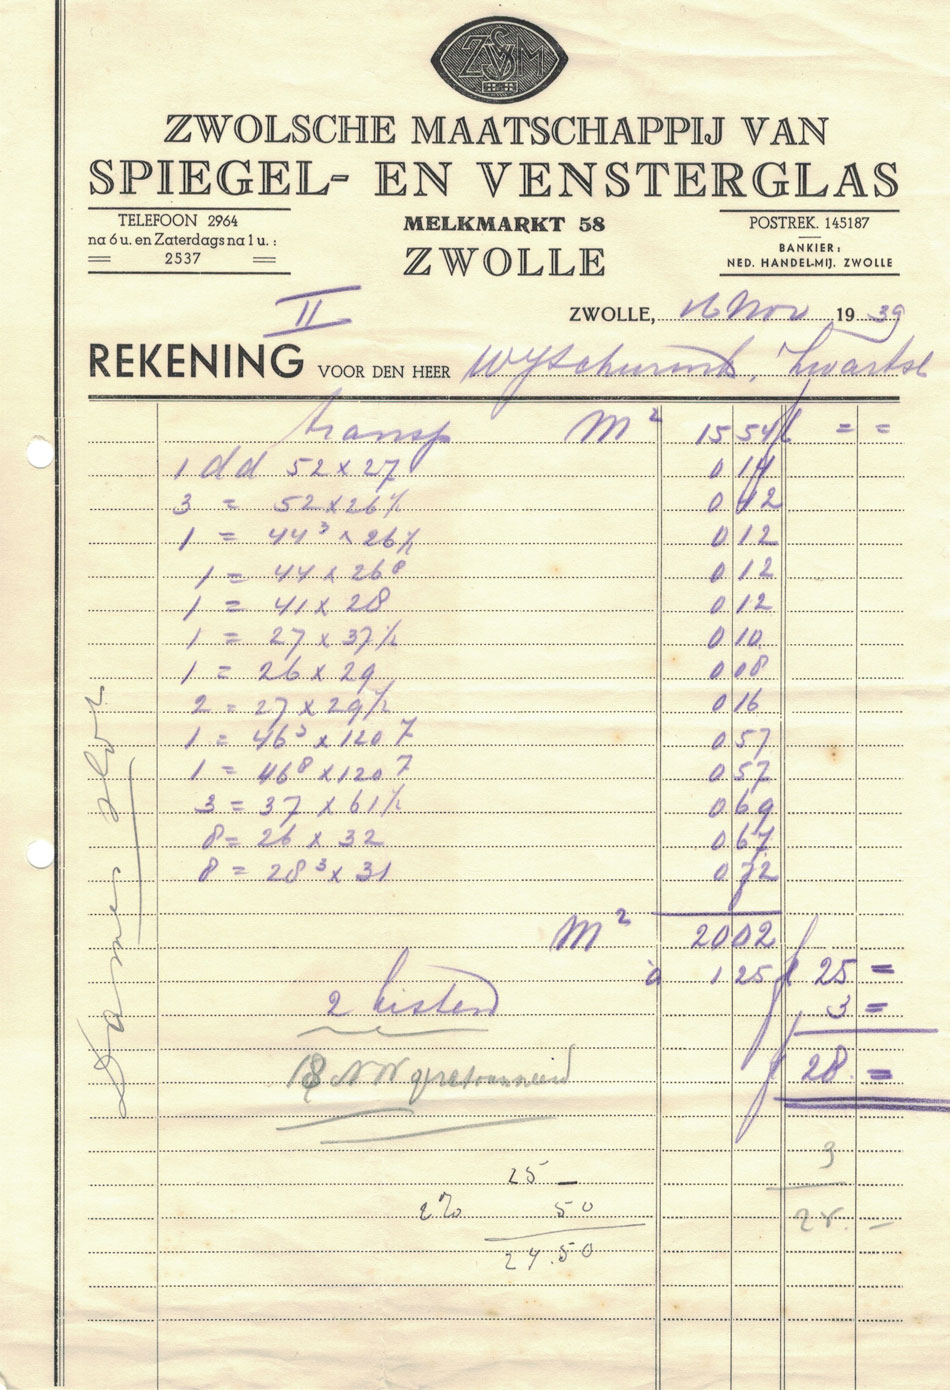 ZVSM
ZWOLSCHE MAATSCHAPPIJ VAN
SPIEGEL- EN VENSTERGLAS
TELEFOON 2964
na 6 u. en Zaterdags na 1 u. :
2537
MELKMARKT 58
ZWOLLE
POSTREK. 145187
BANKIER:
NED. HANDEL-MIJ. ZWOLLE
II
ZWOLLE, 16 Nov 1939
REKENING VOOR DEN HEER
transp M² 15 54 f = =
1 dd 52 x 27 0 14
3 = 52 x 26½ 0 42
1 = 44³ x 26½ 0 12
1 = 44 x 26⁸ 0 12
1 = 41 x 28 0 12
1 = 27 x 37½ 0 10
1 = 26 x 29 0 08
2 = 27 x 29½ 0 16
1 = 46³ x 120⁷ 0 57
1 = 46⁸ x 120⁷ 0 57
3 = 37 x 61½ 0 69
8 = 26 x 32 0 67
8 = 28³ x 31 0 72
M² 20 02
à 1 25 f 25 =
2 kisten 3 =
f 28 =
3
25 —
2% 50
24.50
25. —